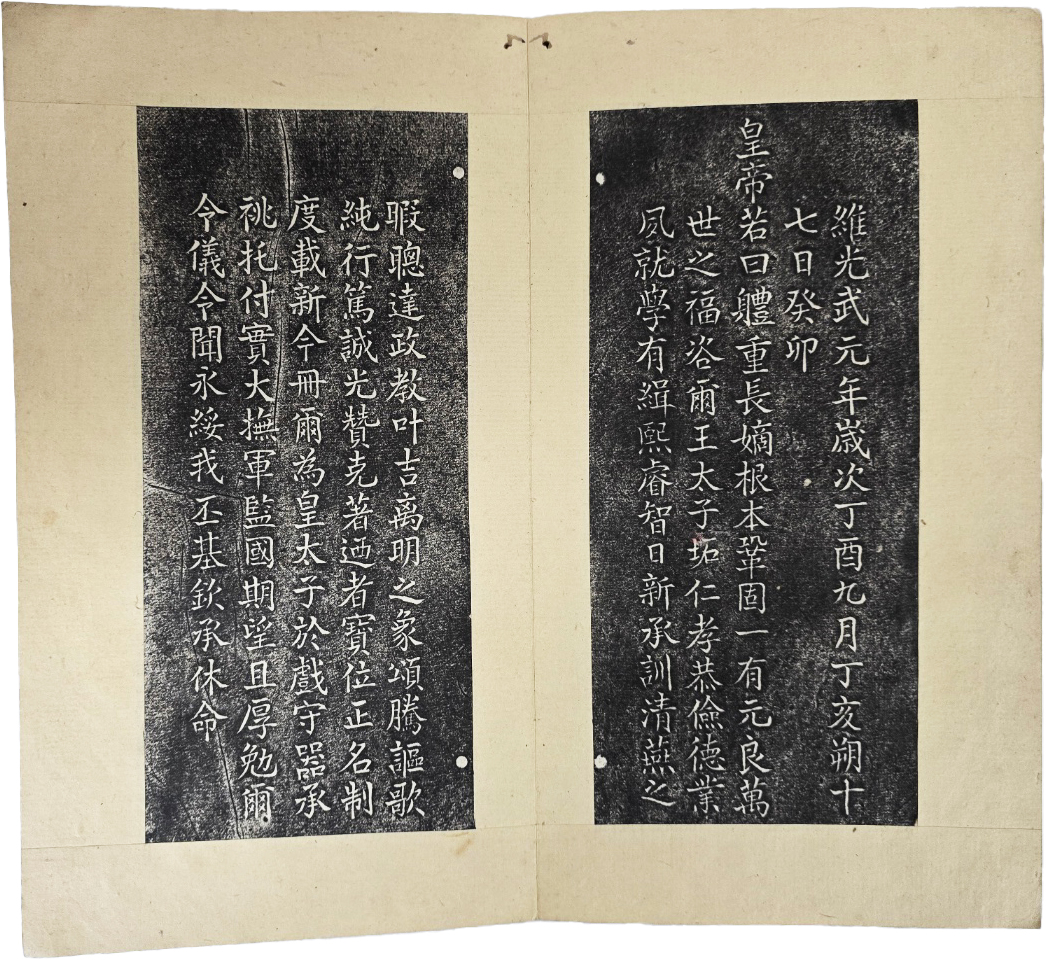 維光武元年歲次丁酉九月丁亥朔十
七日癸卯
皇帝若曰軆重長嫡根本鞏固一有元良萬
世之福咨爾王太子坧仁孝恭儉德業
夙就學有緝熙睿智日新承訓清燕之
暇聰達政教叶吉离明之象頌騰謳歌
純行篤誠光贊克著迺者寶位正名制
度載新今冊爾為皇太子於戲守器承
祧托付實大撫軍監國期望且厚勉爾
令儀令聞永綏我丕基欽承休命